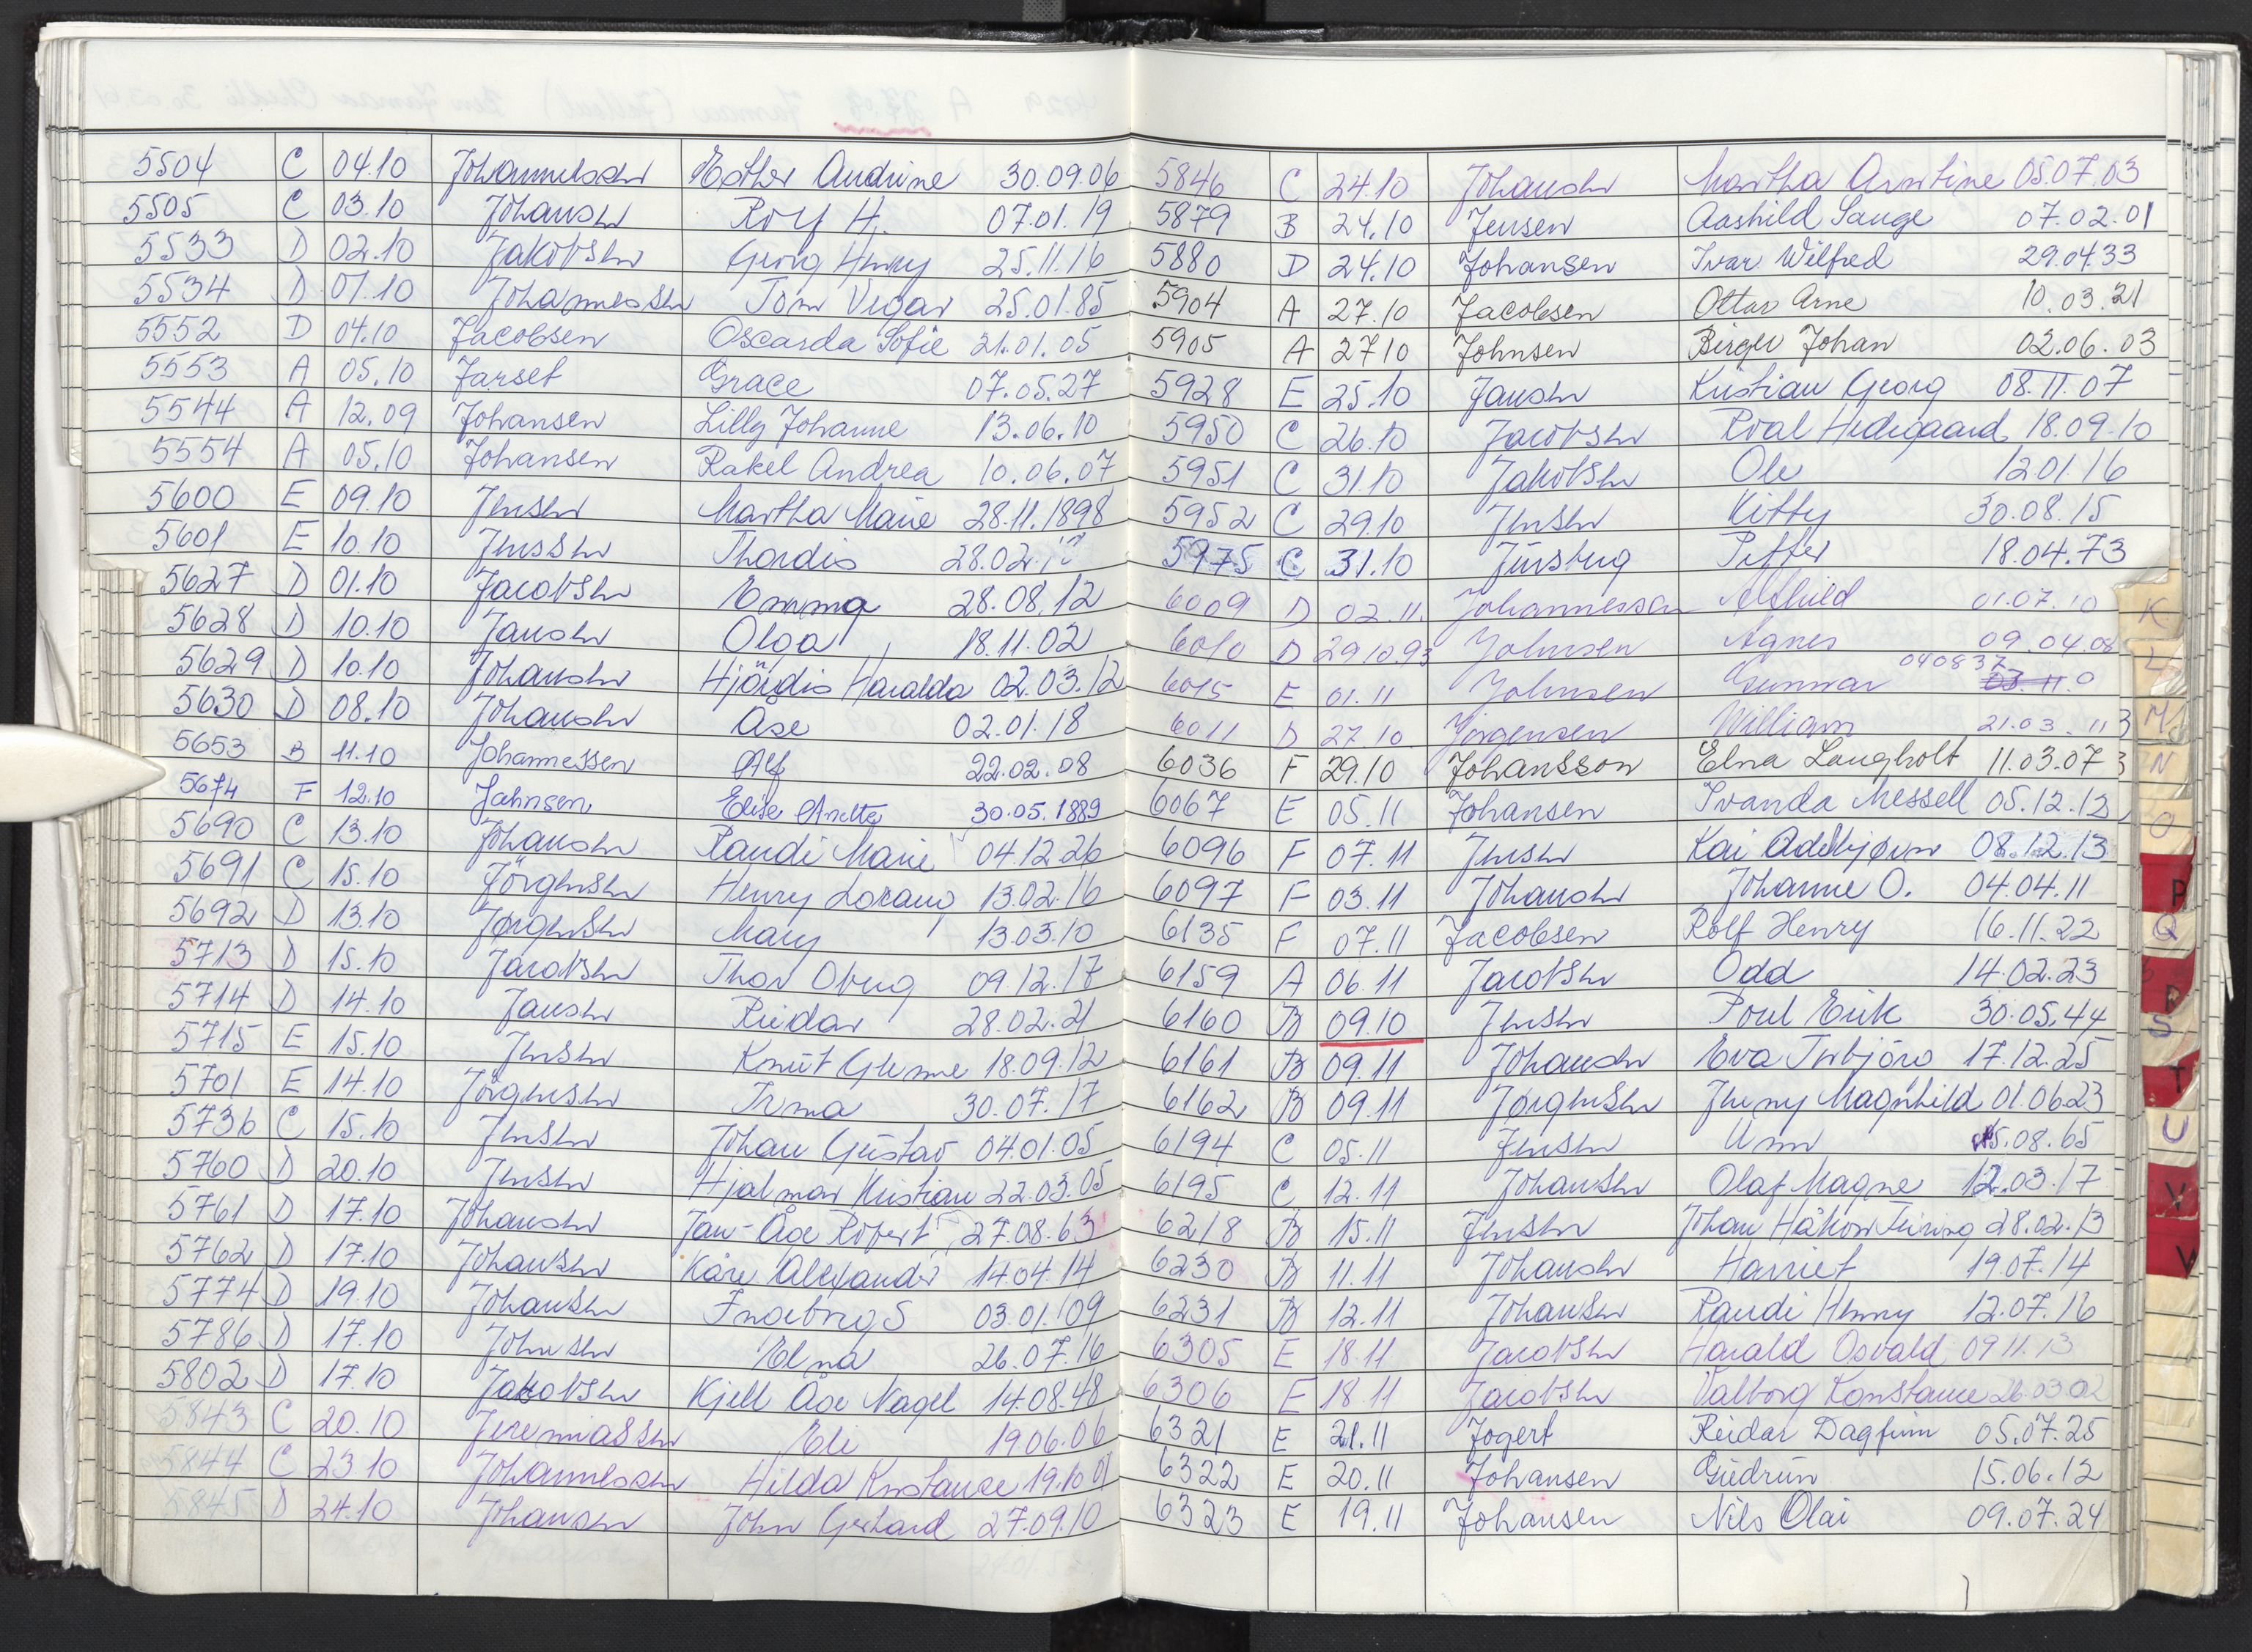 5504 C 04.10 Johannessen Esther Andrine 30.09.06
5505 C 03.10 Johansen Rolf H. 07.01.19
5533 D 02.10 Jakobsen Georg Henry 25.11.16
5534 D 07.10 Johannessen Tom Vegar 25.01.85
5552 D 04.10 Jacobsen Oscarda Sofie 21.01.05
5553 A 05.10 Jarset Grace 07.05.27
5544 A 12.09 Johansen Lilly Johanne 13.06.10
5554 A 05.10 Johansen Rakel Andrea 10.06.07
5600 E 09.10 Jensen Martha Marie 28.11.1898
5601 E 10.10 Jenssen Thordis 28.02.
5627 D 01.10 Jacobsen Emma 28.08.12
5628 D 10.10 Jansen Olga 18.11.02
5629 D 10.10 Johansen Hjørdis Haralda 02.03.12
5630 D 08.10 Johansen Åse 02.01.18
5653 B 11.10 Johannessen Alf 22.02.08
5674 F 12.10 Jahnsen Elise Anette 30.05.1889
5690 C 13.10 Johansen Randi Marie 04.12.26
5691 C 15.10 Jörgensen Henry 13.02.16
5692 D 13.10 Jørgensen Mary 13.03.10
5713 D 15.10 Jacobsen Thor 09.12.17
5714 D 14.10 Jansen Reidar 28.02.21
5715 E 15.10 Jensen Knut Glenne 18.09.12
5701 E 14.10 Jörgensen Irma 30.07.17
5736 C 15.10 Jensen Johan Gustav 04.01.05
5760 D 20.10 Jensen Hjalmar Kristian 22.03.05
5761 D 17.10 Johansen Jan-Åge Robert 27.08.63
5762 D 17.10 Johansen Kåre Alexander 14.04.14
5774 D 19.10 Johansen Ingeborg S 03.01.09
5786 D 17.10 Johnsen Elna 26.07.16
5802 D 17.10 Jakobsen Kjell Åge Nagel 14.08.48
5843 C 20.10 Jeremiassen Eli 19.06.06
5844 C 23.10 Johannessen Hilda Konstanse 19.10.01
5845 D 24.10 Johansen John Gerhard 27.09.10
5846 C 24.10 Johansen Martha Arntine 05.07.03
5879 B 24.10 Jensen Aashild Sauge 07.02.01
5880 D 24.10 Johansen Ivar Wilfred 29.04.33
5904 A 27.10 Jacobsen Ottar Arne 10.03.21
5905 A 27.10 Johnsen Birger Johan 02.06.03
5928 E 25.10 Jansen Kristian Georg 08.11.07
5950 C 26.10 Jacobsen Roal Hedegaard 18.09.10
5951 C 31.10 Jakobsen Ole 12.01.16
5952 C 29.10 Jensen Kitty 30.08.15
5975 C 31.10 Petter 18.04.73
6009 D 02.11. Johannessen Alfhild 01.07.10
6010 D 29.10.93 Johnsen Agnes 09.04.08
6015 E 01.11 Johnsen Gunnar 040837
6011 D 27.10. Jørgensen William 21.03.11
6036 F 29.10 Johansson Elna Langholt 11.03.07
6067 E 05.11 Johansen Ivanda Messell 05.12.12
6096 F 07.11 Jensen Kai 08.12.13
6097 F 03.11 Johansen Johanne O. 04.04.11
6135 F 07.11 Jacobsen Rolf Henry 16.11.22
6159 A 06.11 Jacobsen Odd 14.02.23
6160 B 09.10 Jensen Poul Erik 30.05.44
6161 B 09.11 Johansen Eva Torbjørg 17.12.25
6162 B 09.11 Jørgensen Jenny Magnhild 01.06.23
6194 C 05.11 Jensen Unn 15.08.65
6195 C 12.11 Johansen Olaf Magne 12.03.17
6218 B 15.11 Jensen Johan Håkon Feiring 28.02.13
6230 B 11.11 Johansen Harriet 19.07.14
6231 B 12.11 Johansen Randi Henny 12.07.16
6305 E 18.11 Jacobsen Harald Osvald 09.11.13
6306 E 18.11 Jacobsen Valborg Konstanse 26.03.02
6321 E 21.11 Jogert Reidar Dagfinn 05.07.25
6322 E 20.11 Johansen Gudrun 15.06.12
6323 E 19.11 Johansen Nils Olai 09.07.24
K
L
M
N
O
P
Q
R
S
T
U
V